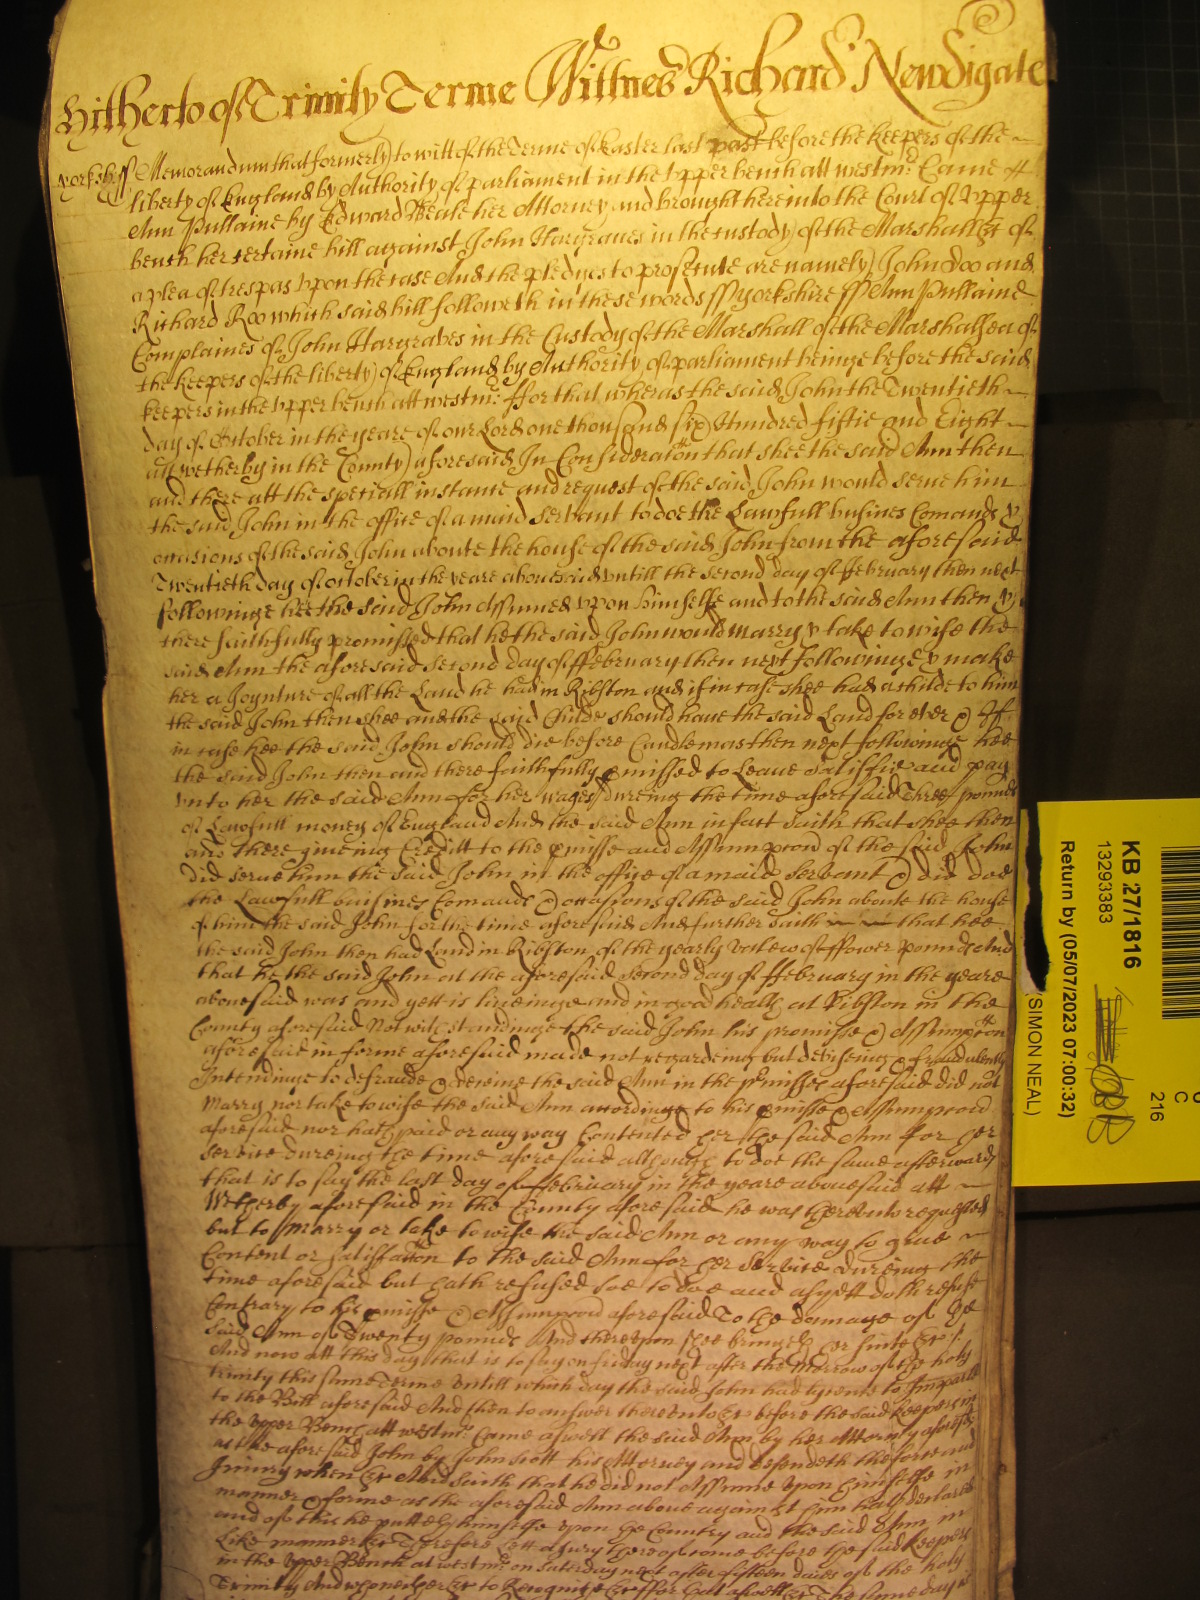 Hitherto of Trinity Terme Wittnes Richard Newdigate
Yorksh ss Memorandum that formerly to witt of the Terme of Easter last past before the Keepers of the
liberty of England by Authority of parliament in the Upper bench att westmr Came
Ann Pullaine by Edward Weale her Attorney and brought here into the Court of Upper
bench her certaine bill against John Hargraues in the custody of the Marshall &c of
a plea of trespas upon the case And the pledges to prosecute are namely John Doo and
Richard Roo which said bill followeth in these words ss Yorkshire ss Ann Pullaine
Complaines of John Hargraves in the Custody of the Marshall of the Marshalsea of
the keepers of the liberty of England by Authority of parliament beinge before the said
keepers in the Upper bench att westmr ffor that wheras the said John the Twentieth
day of October in the yeare of our Lord one thousand six Hundred fiftie and Eight
att wetherby in the County aforesaid In Consideration that shee the said Ann then
and there att the speciall instance and request of the said John would serve him
the said John in the office of a maid servant to doe the Lawfull busines Comands &
occasions of the said John aboute the house of the said John from the aforesaid
Twentieth day of october in the yeare abousaid untill the second day of ffebruary then next
followinge hee the said John Assumed upon himselfe and to the said Ann then &
there faithfully promissed that he the said John would marry & take to wife the
said Ann the aforesaid second day of ffebruary then next followinge & make
her a Joynture of all the Land he had in Ribston and if in case shee had a childe to him
the said John then shee and the said Childe should have the said Land for ever & Iff
in case hee the said John should die before Candlemas then next followinge hee
the said John then and there faithfully pmissed to Leave satisfie and pay
unto her the said Ann for her wages dureing the time aforesaid Three pounds
of Lawfull money of England And the said Ann in fact saith that shee then
and there giveing Creditt to the pmisse and Assumpcon of the said John
did serve him the said John in the office of a maid servant & did doe
the Lawfull busines Comands & occasions of the said John aboute the house
of him the said John for the time aforesaid And further saith that hee
the said John then had Land in Ribston of the yearly valew of ffower pounds And
that he the said John att the aforesaid second day of ffebruary in the yeare
abovesaid was and yett is liveinge and in good health at Ribston in the
County aforesaid Notwithstandinge the said John his promisse & Assumpcon
aforesaid in forme aforesaid made not regardeing but deviseing & fraudulently
Intendinge to defraude & deceive the said Ann in the pmisses aforesaid did not
marry nor take to wife the said Ann according to his pmisse & Assumpcon
aforesaid nor hath paid or any way Contented her the said Ann for her
service dureing the time aforesaid although to doe the same afterwards
that is to say the last day of ffebruary in the yeare abovesaid att
Wetherby aforesaid in the County aforesaid he was thereunto requested
but to Marry or take to wife the said Ann or any way to give
Content or satisfaction to the said Ann for her service dureing the
time aforesaid but hath refused soe to doe and as yett doth refuse
Contrary to his pmisse & Assumpcon aforesaid To the damage of the
said Ann of Twenty pounds And thereupon shee bringeth her suite &c
And now att this day that is to say on friday next after the Morrow of the holy
trinity this same Terme untill which day the said John had lycence to Imparle
to the Bill aforesaid And then to answer thereunto &c before the said keepers in
the Upper Bench att westmr Came aswell the said Ann by her Attorny aforesd
as the aforesaid John by John Scott his Attorney and defendeth the force and
Iniury when &c And saith that he did not Assume upon himselfe in
manner & forme as the aforesaid Ann above against him hath declared
and of this he putteth himselfe upon the Country and the said Ann in
Like manner &c Therefore Lett a Jury thereof come before the said keepers
in the Upper Bench at westmr on Saturday next after fifteen daies of the holy
Trinity And who neither &c to Recognize &c ffor that aswell &c The same day is
KB 27/1816
13293383
Return by (05/07/2023 07:00:32)
(SIMON NEAL)
C
216